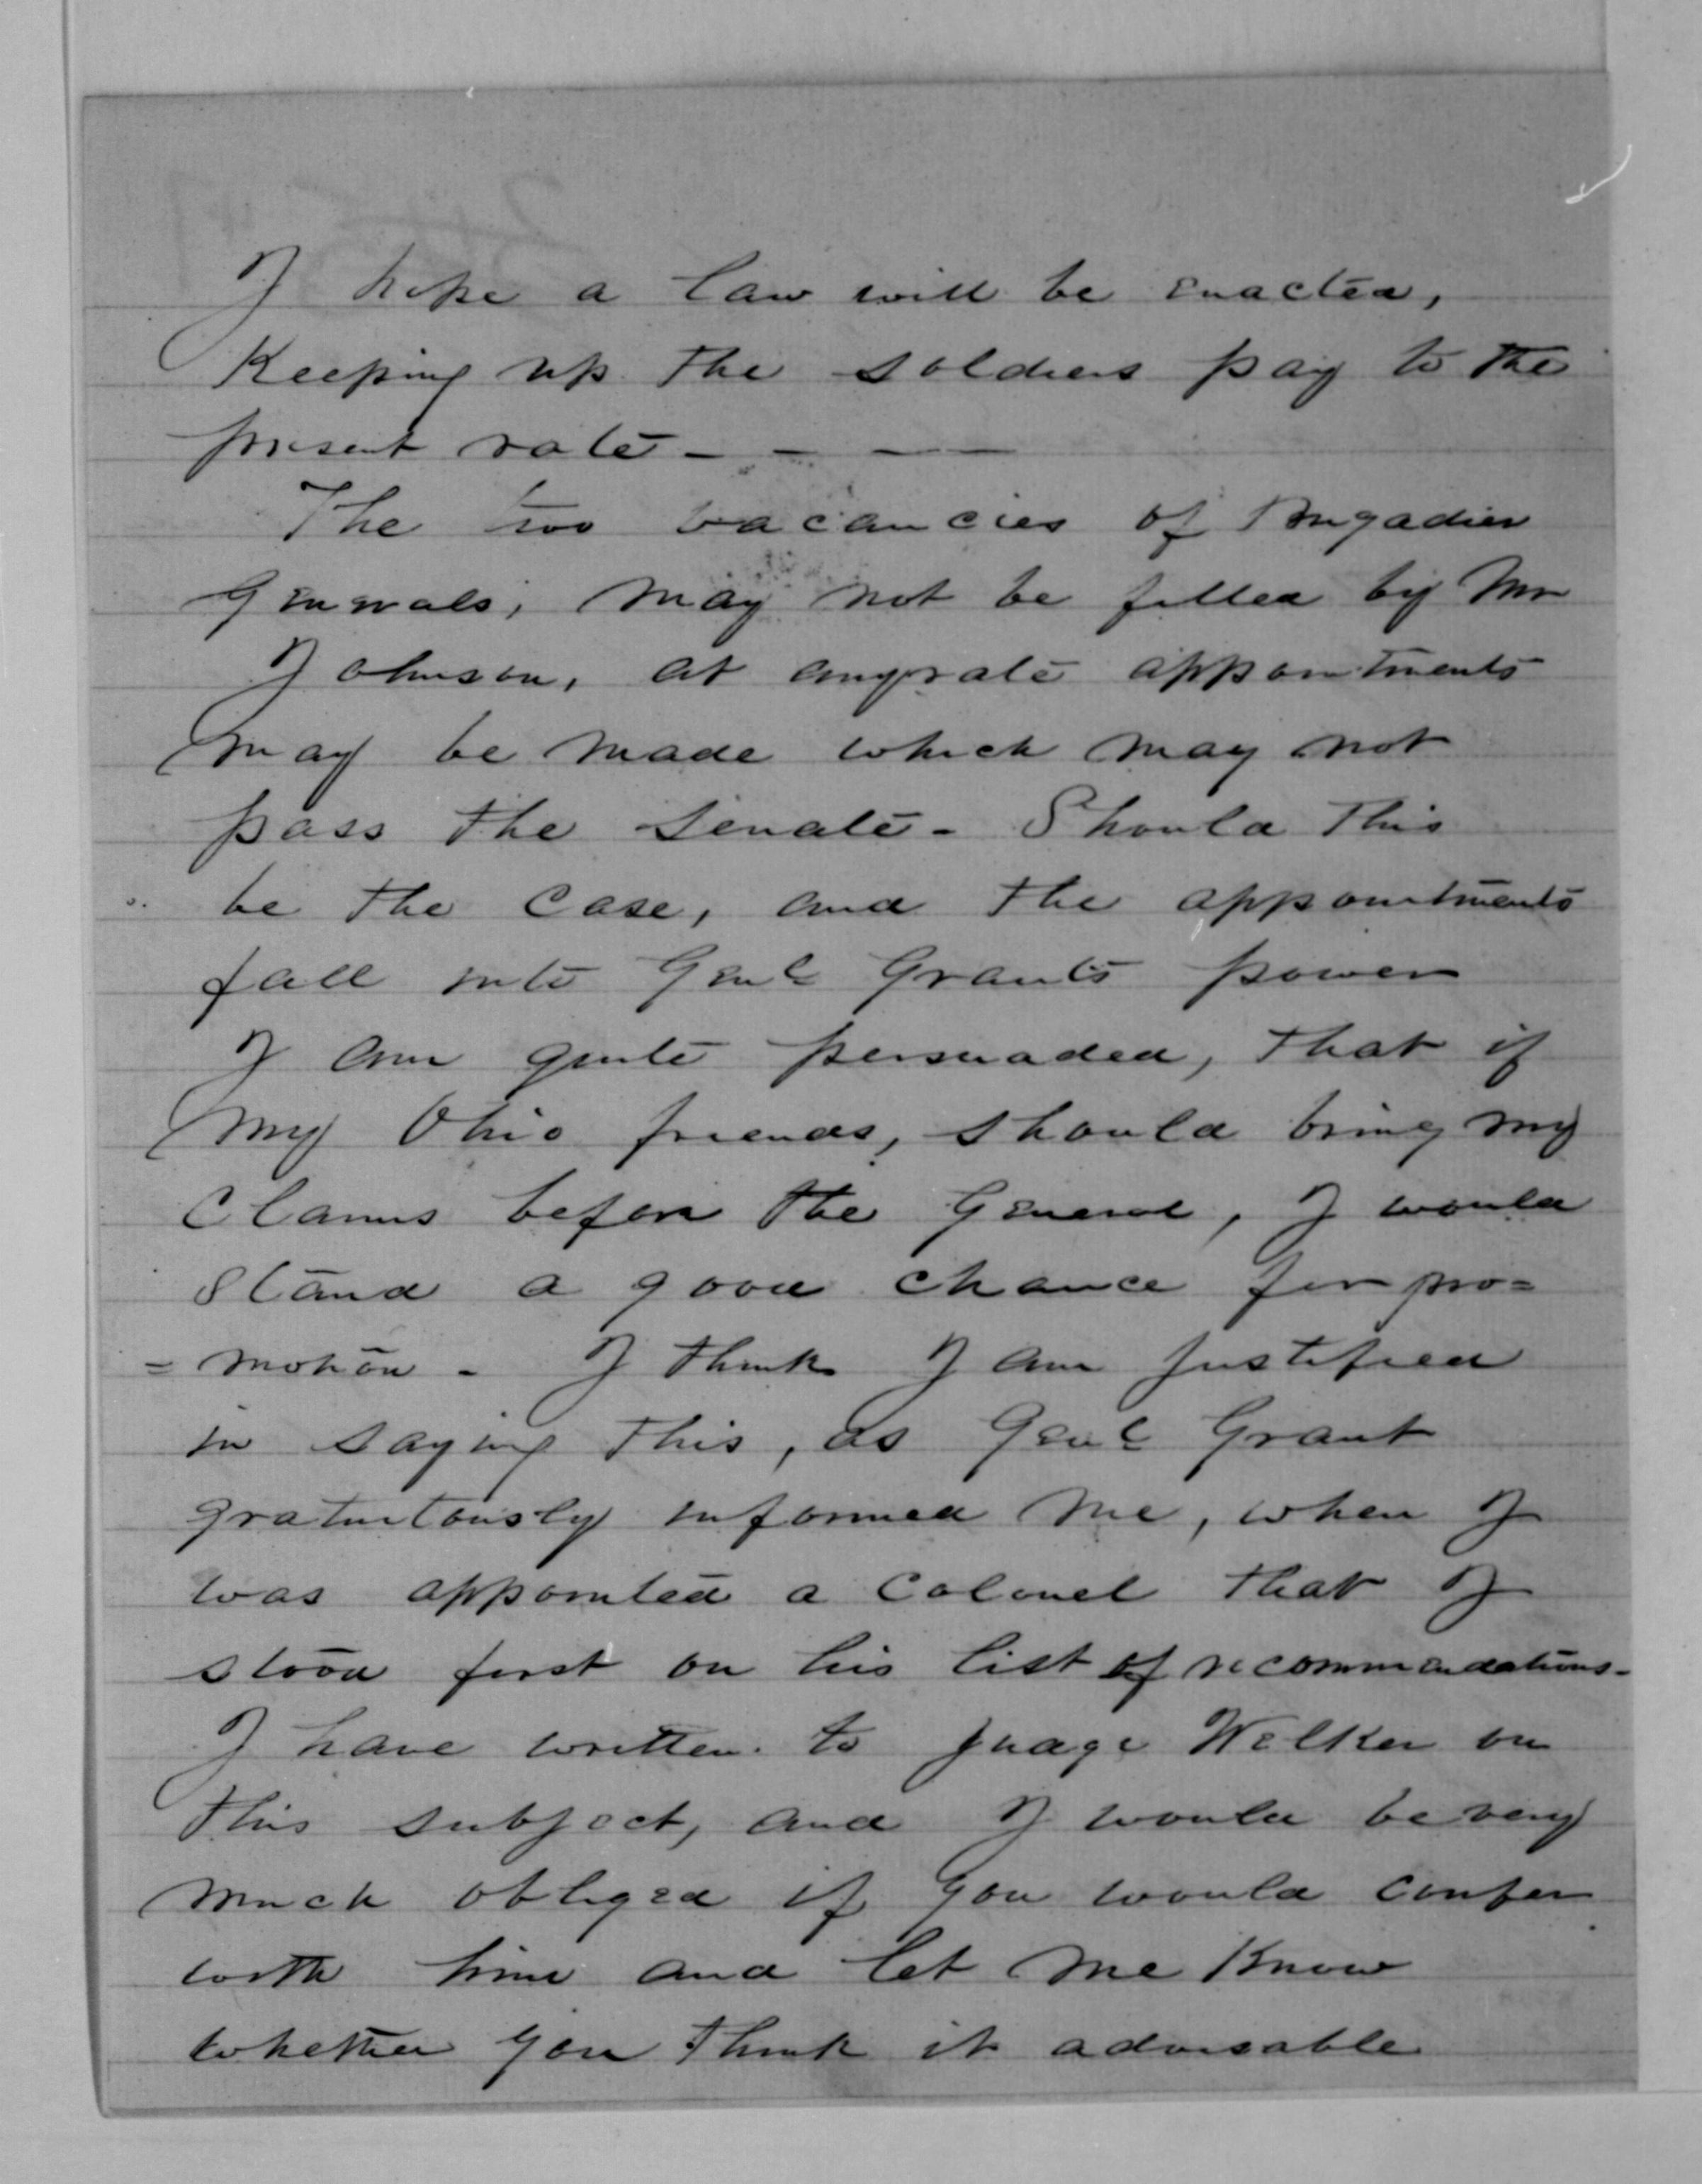 I hope a law will be enacted,
Keeping up the soldiers pay to the
present rate - - - -
The two vacancies of Brigadier
Generals, may not be filled by Mr
Johnson, at anyrate appointments
may be made which may not
pass the Senate - Should this
be the case, and the appointments
fall into Genl Grants power
I am quite persuaded, that if
my Ohio friends, should bring my
Claims before the General, I would
stand a good chance for pro=
=motion - I think I am justified
in saying this, as Genl Grant
gratuitously informed me, when I
was appointed a Colonel that I
stood first on his list of recommendations -
I have written to Judge Welker on
this subject, and I would be very
much obliged if you would confer
with him and let me know
whether you think it advisable